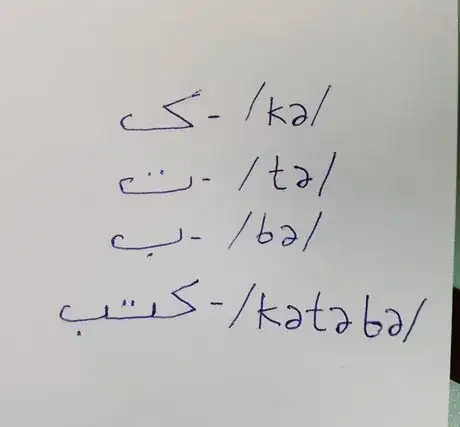 ک - /kə/
ت - /tə/
ب - /bə/
کتب - /kətəbə/